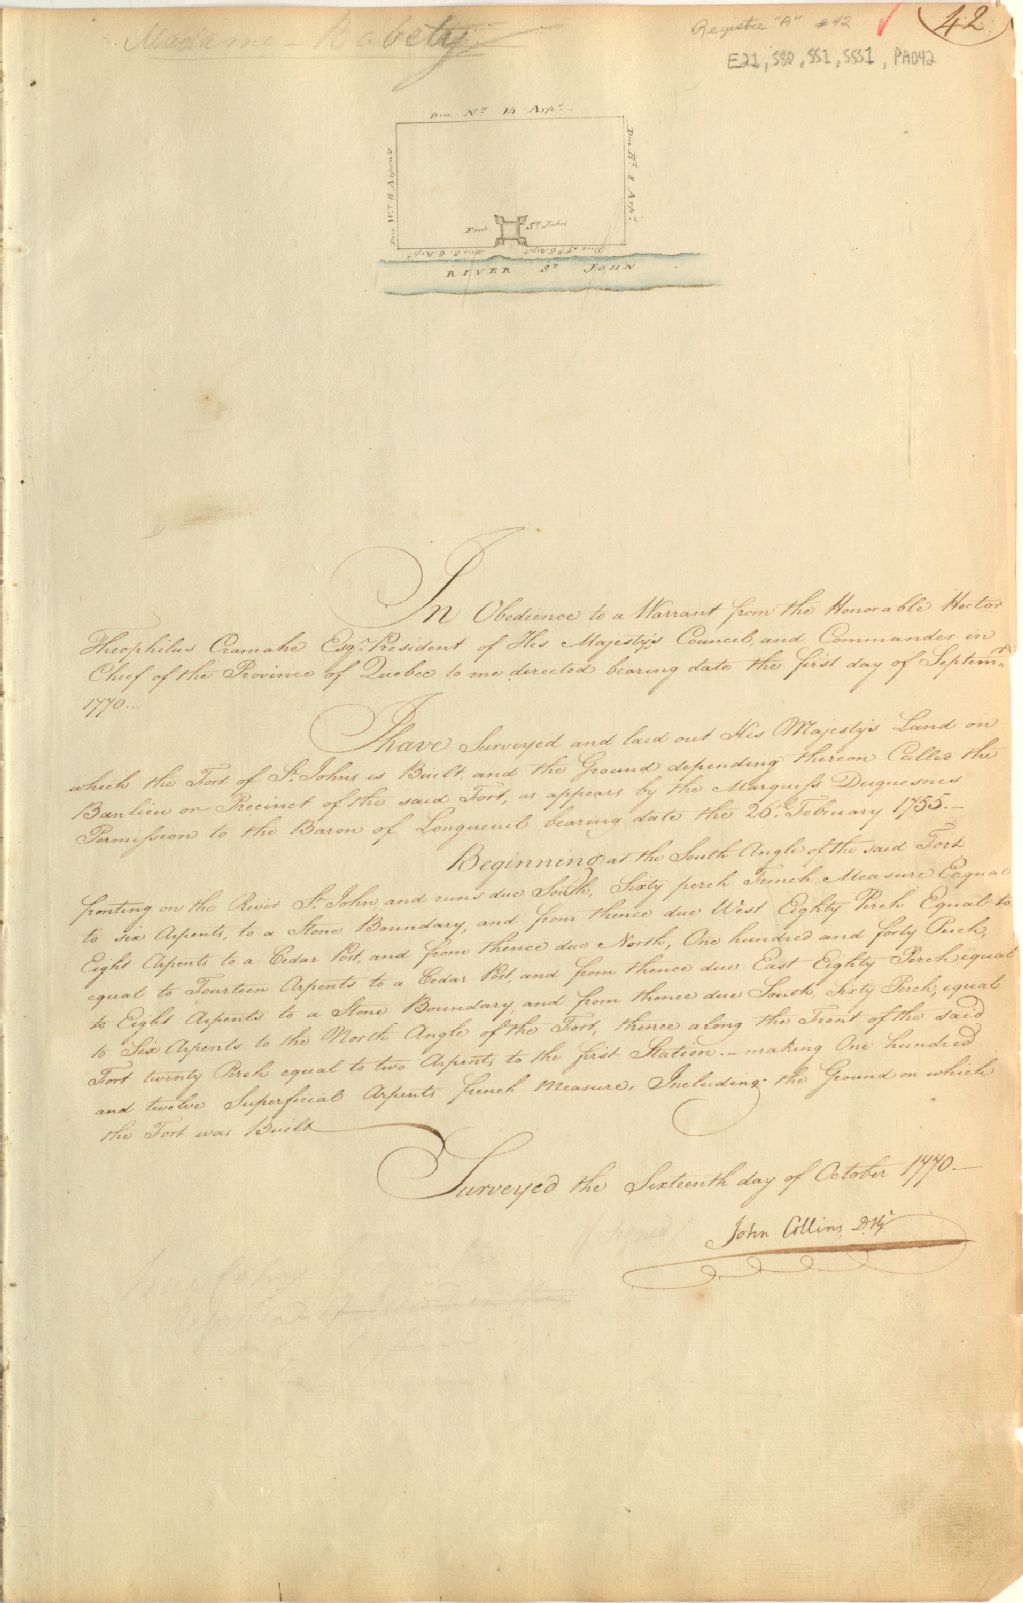 Madame Babety
Registre "A" #42
42
E21, S80, SS1, SSS1, PA042
Due Nº 14 Arpts
Due Wt 8 Arpents
Due Et 8 Arpts
Fort St John
Due S. 6 Arpts
Due Sth 6 Arpts
RIVER St JOHN
In Obedience to a Warrant from the Honorable Hector
Theophilus Cramahe Esqr. President of His Majesty's Council, and Commander in
Chief of the Province of Quebec to me directed bearing date the first day of Septemr.
1770.—
I have Surveyed and laid out His Majesty's Land on
which the Fort of St. Johns is Built, and the Ground depending thereon Called the
Banlieu or Precinct of the said Fort, as appears by the Marquess Duquesnes
Permission to the Baron of Longueuil bearing date the 26th. February 1755.—
Beginning at the South Angle of the said Fort
fronting on the River St. John, and runs due South, Sixty perch French Measure Eequal
to six Arpents, to a Stone Boundary, and from thence due West Eighty Perch Equal to
Eight Arpents to a Cedar Post, and from thence due North, One hundred and forty Perch,
equal to Fourteen Arpents to a Cedar Post, and from thence due East Eighty Perch equal
to Eight Arpents to a Stone Boundary, and from thence due South Sixty Perch, equal
to Six Arpents to the North Angle of the Fort, thence along the Front of the said
Fort twenty Perch equal to two Arpents to the first Station.— making One hundred
and twelve Superficial Arpents french Measure, Including the Ground on which
the Fort was Built
Surveyed the Sixteenth day of October 1770.—
(signed)
John Collins